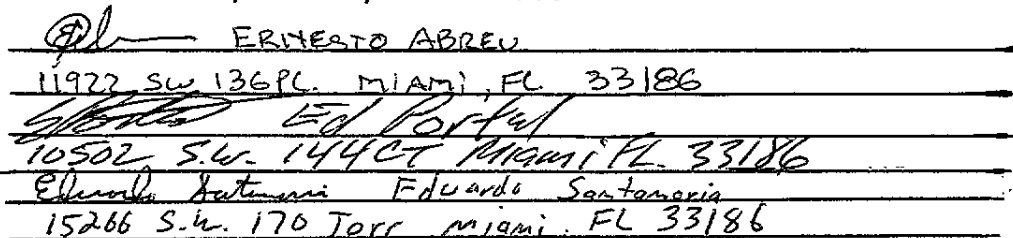 ERNESTO ABREU
11922 SW 136 PL. MIAMI, FL 33186
Ed Portal
10502 S.W. 144 CT Miami FL. 33186
Eduardo Santamaria
15266 S.W. 170 Terr Miami. FL 33186